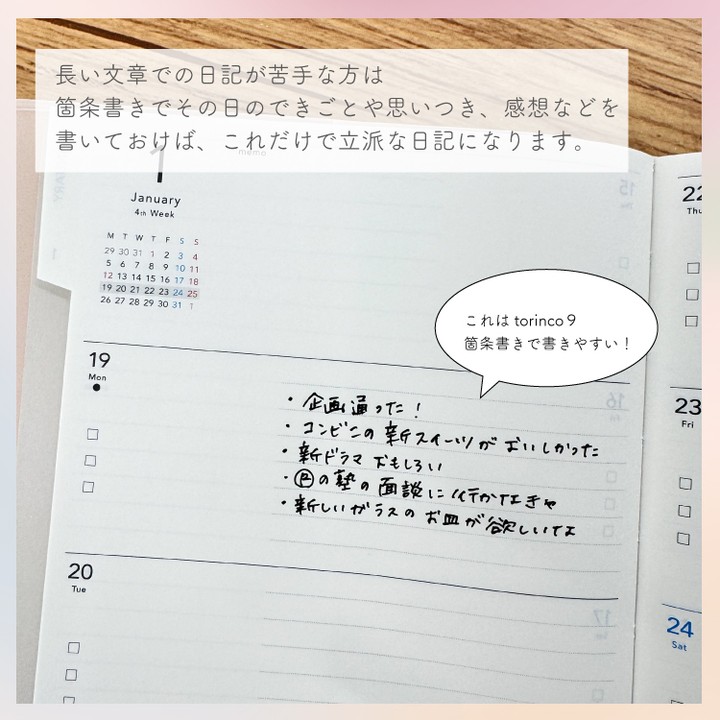 長い文章での日記が苦手な方は
箇条書きでその日のできごとや思いつき、感想などを
書いておけば、これだけで立派な日記になります。
1
memo
January
4th Week
M T W T F S S
29 30 31 1 2 3 4
5 6 7 8 9 10 11
12 13 14 15 16 17 18
19 20 21 22 23 24 25
26 27 28 29 30 31 1
これは torinco 9
箇条書きで書きやすい！
19
Mon
・企画通った！
・コンビニの新スイーツがおいしかった
・新ドラマおもしろい
・Ⓡの塾の面談に行かなきゃ
・新しいガラスのお皿が欲しいなぁ
20
Tue
22
Thu
23
Fri
24
Sat
15
16
17